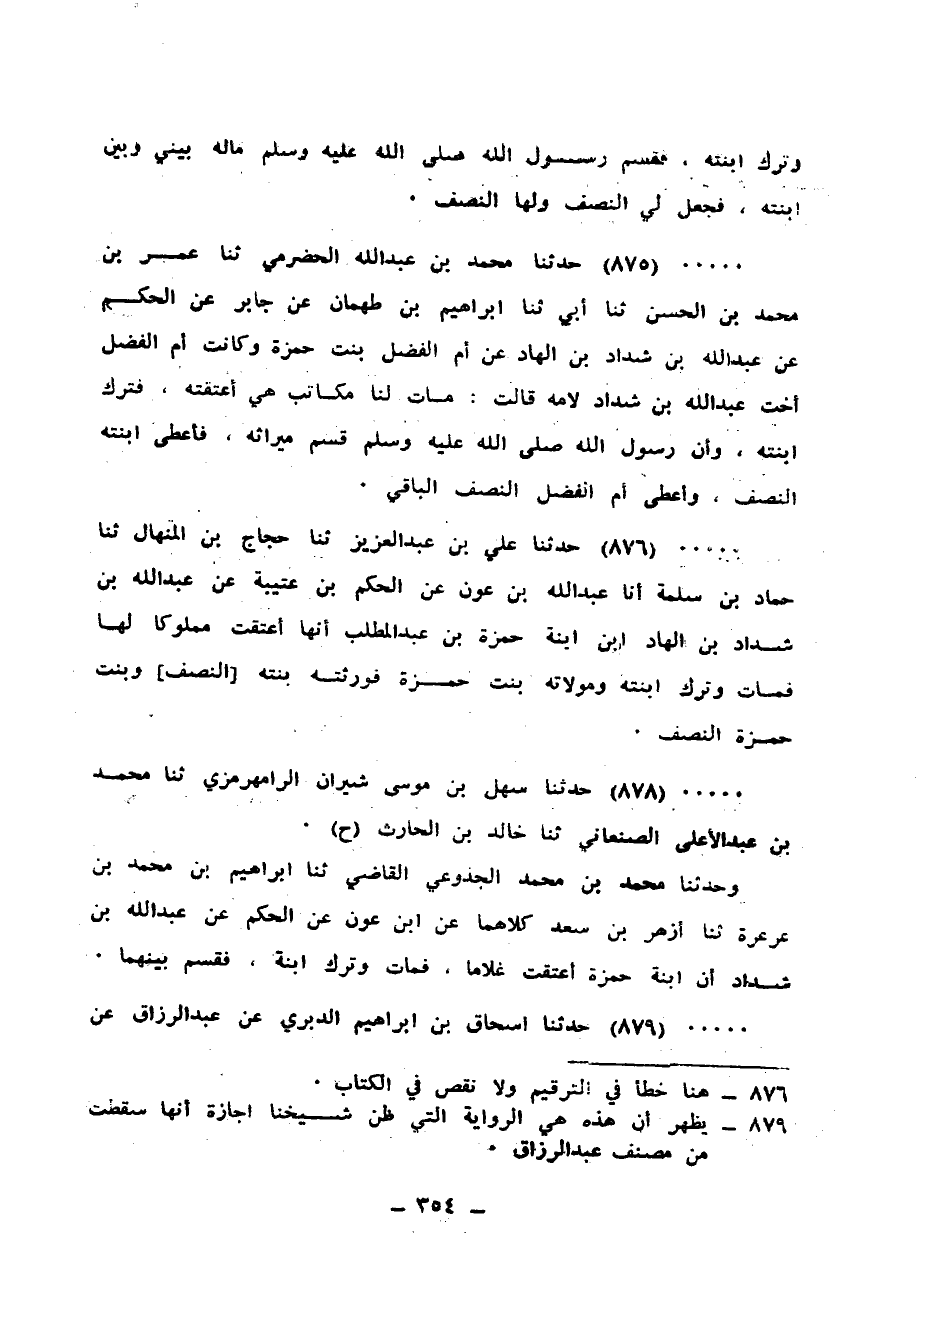 وترك ابنته ، فقسم رسول الله صلى الله عليه وسلم ماله بيني وبين
ابنته ، فجعل لي النصف ولها النصف ٠
٠٠٠٠٠ (٨٧٥) حدثنا محمد بن عبدالله الحضرمي ثنا عمر بن
محمد بن الحسن ثنا أبي ثنا ابراهيم بن طهمان عن جابر عن الحكم
عن عبدالله بن شداد بن الهاد عن أم الفضل بنت حمزة وكانت أم الفضل
أخت عبدالله بن شداد لامه قالت : مات لنا مكاتب هي أعتقته ، فترك
ابنته ، وأن رسول الله صلى الله عليه وسلم قسم ميراثه ، فأعطى ابنته
النصف ، وأعطى أم الفضل النصف الباقي ٠
٠٠٠٠٠ (٨٧٦) حدثنا علي بن عبدالعزيز ثنا حجاج بن المنهال ثنا
حماد بن سلمة أنا عبدالله بن عون عن الحكم بن عتيبة عن عبدالله بن
شداد بن الهاد ابن ابنة حمزة بن عبدالمطلب أنها أعتقت مملوكا لها
فمات وترك ابنته ومولاته بنت حمزة فورثته بنته [النصف] وبنت
حمزة النصف ٠
٠٠٠٠٠ (٨٧٨) حدثنا سهل بن موسى شيران الرامهرمزي ثنا محمد
بن عبدالأعلى الصنعاني ثنا خالد بن الحارث (ح) ٠
وحدثنا محمد بن محمد الجذوعي القاضي ثنا ابراهيم بن محمد بن
عرعرة ثنا أزهر بن سعد كلاهما عن ابن عون عن الحكم عن عبدالله بن
شداد أن ابنة حمزة أعتقت غلاما ، فمات وترك ابنة ، فقسم بينهما ٠
٠٠٠٠٠ (٨٧٩) حدثنا اسحاق بن ابراهيم الدبري عن عبدالرزاق عن
٨٧٦ ـ هنا خطأ في الترقيم ولا نقص في الكتاب ٠
٨٧٩ ـ يظهر أن هذه هي الرواية التي ظن شيخنا اجازة أنها سقطت
من مصنف عبدالرزاق ٠
ـ ٣٥٤ ـ